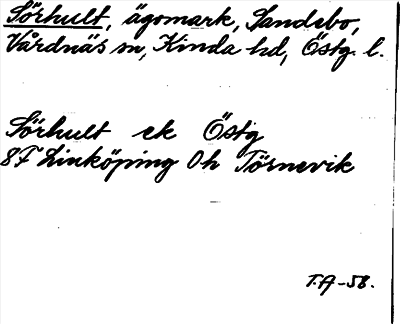 Sörhult, ägomark, Sandebo,
Vårdnäs sn, Kinda hd, Östg. l.
Sörhult ek Östg
8F Linköping 0h Törnevik
T.A-58.